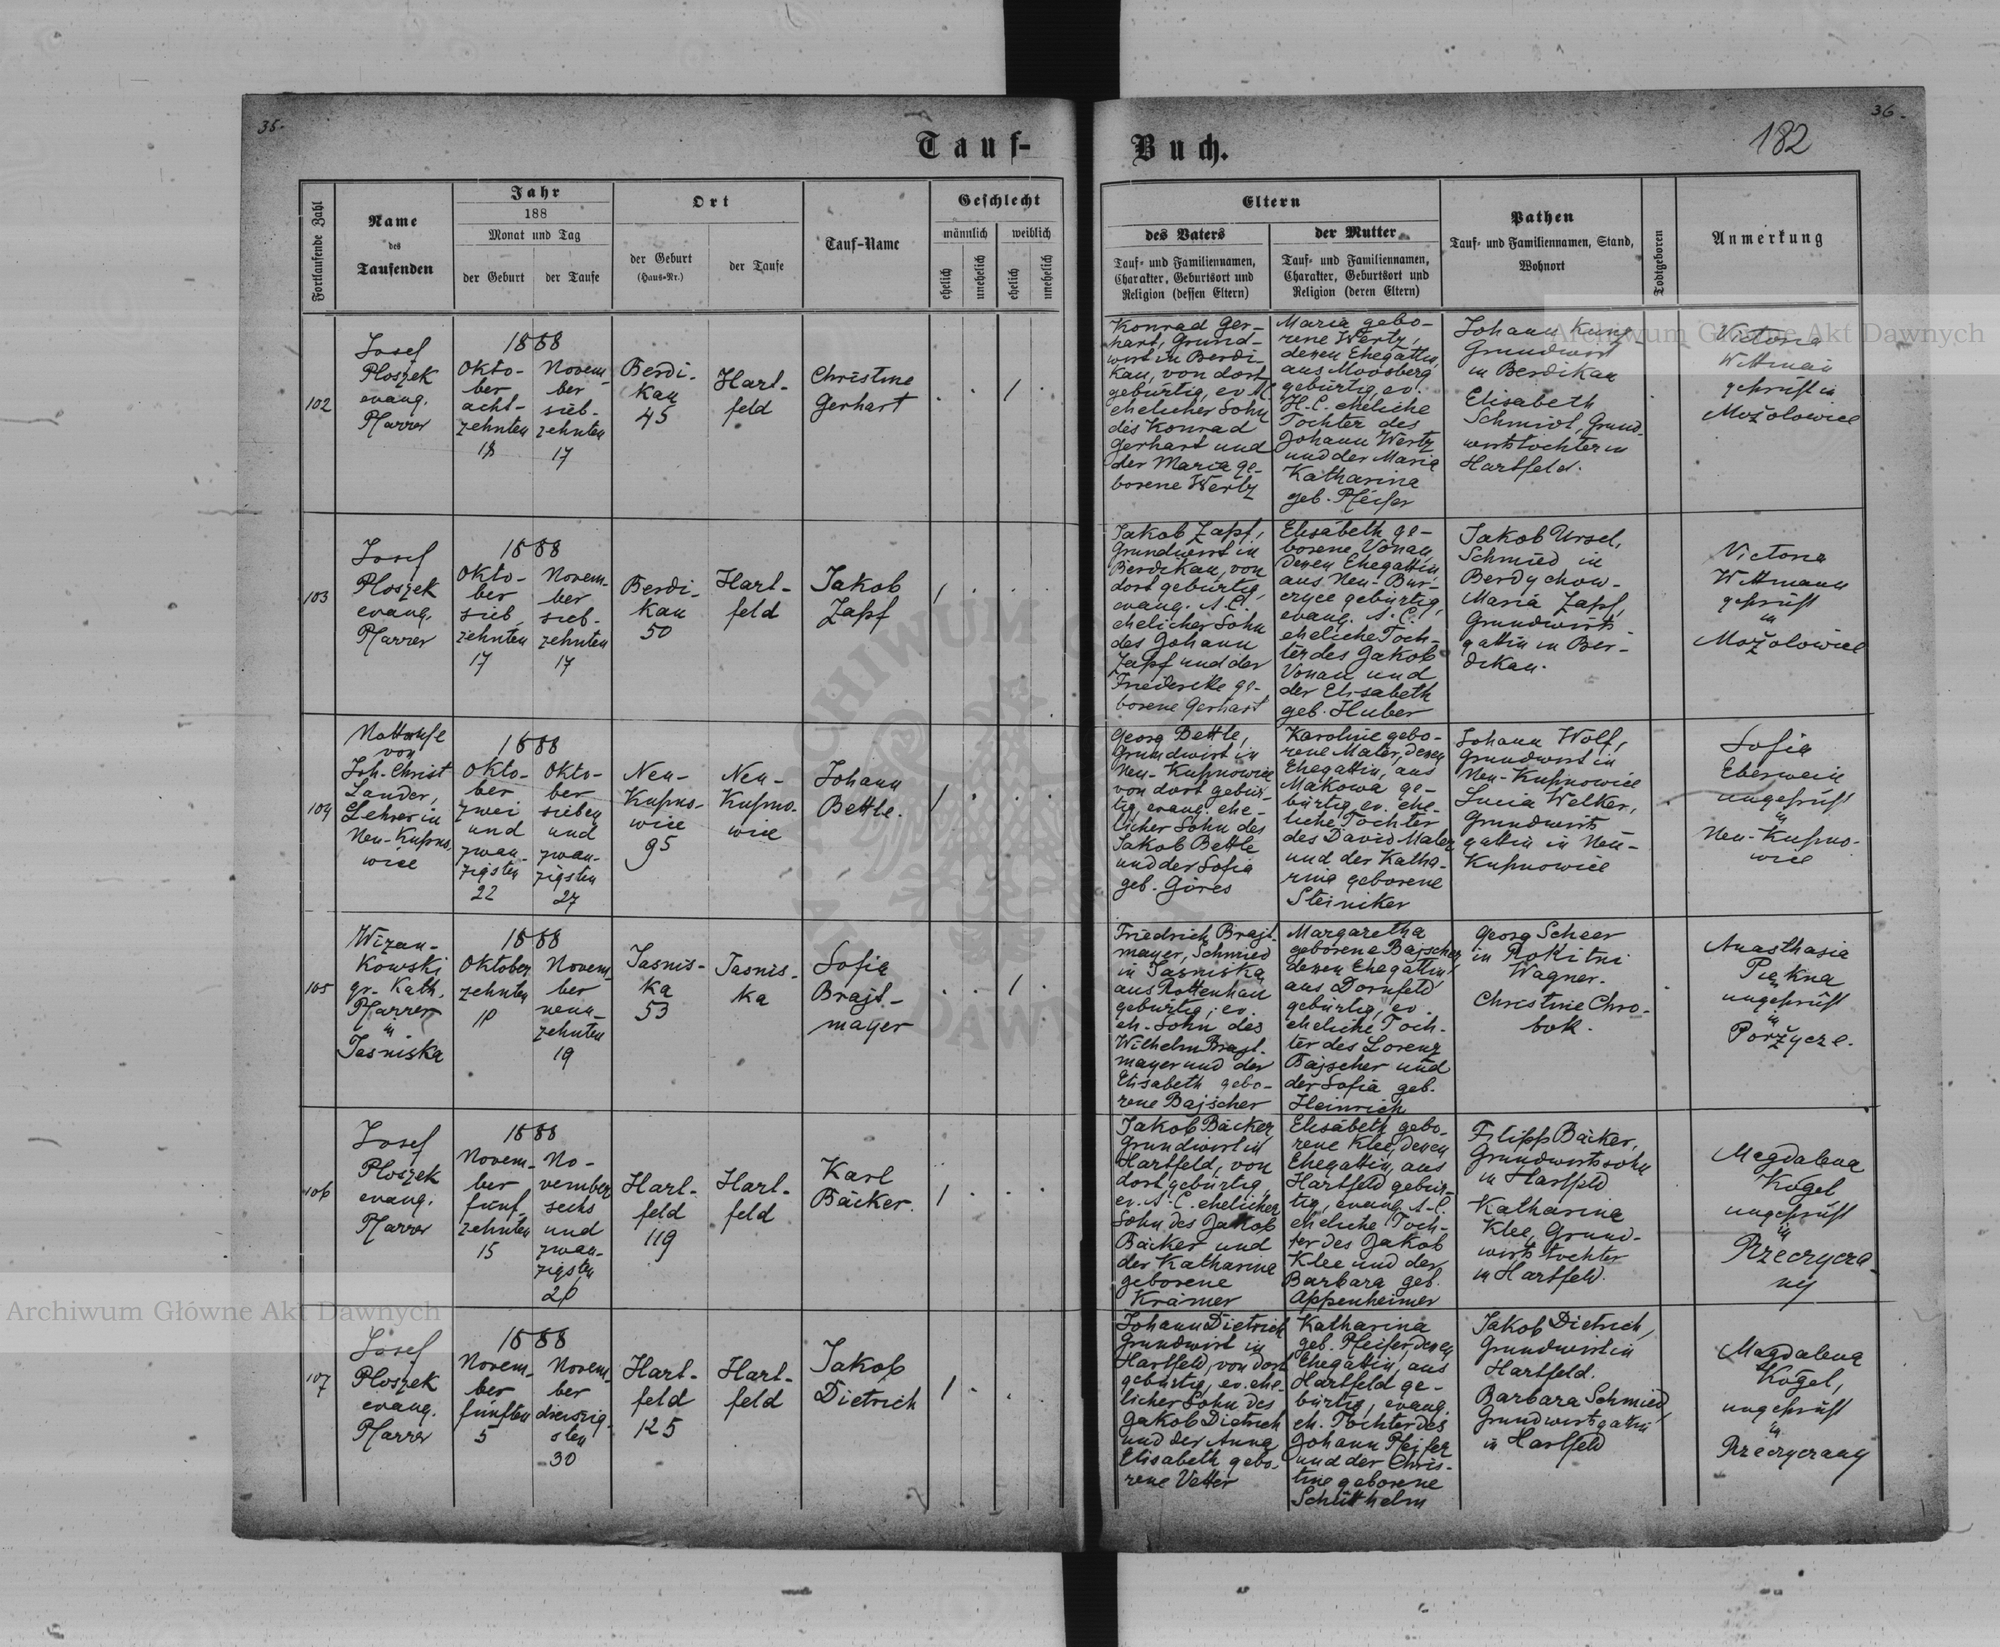 35.
36.
182
Tauf-
Buch.
Fortlaufende Zahl
Name
des
Taufenden
Jahr
188
Monat und Tag
der Geburt
der Taufe
Ort
der Geburt
(Haus-Nr.)
der Taufe
Tauf-Name
Geschlecht
männlich
weiblich
ehelich
unehelich
ehelich
unehelich
Eltern
des Vaters
Tauf- und Familiennamen,
Charakter, Geburtsort und
Religion (dessen Eltern)
der Mutter
Tauf- und Familiennamen,
Charakter, Geburtsort und
Religion (deren Eltern)
Pathen
Tauf- und Familiennamen, Stand,
Wohnort
Todtgeboren
Anmerkung
102
Josef
Ploszek
evang.
Pfarrer
1888
Okto-
ber
acht-
zehnten
18
Novem-
ber
sieb-
zehnten
17
Berdi-
kau
45
Hart-
feld
Christine
Gerhart
Konrad Ger-
hart, Grund-
wirt in Berdi-
kau, von dort
gebürtig, ev. A.
ehelicher Sohn
des Konrad
Gerhart und
der Maria ge-
borene Wertz
Maria gebo-
rene Wertz,
deren Ehegattin,
aus Moosberg
gebürtig, ev.
H. C. eheliche
Tochter des
Johann Wertz
und der Maria
Katharina
geb. Pfeifer
Johann Kung
Grundwirt
in Berdikau
Elisabeth
Schmidt, Grund-
wirtstochter in
Hartfeld.
Victoria
Wittman
geprüft in
Możolowice
103
Josef
Ploszek
evang.
Pfarrer
1888
Okto-
ber
sieb-
zehnten
17
Novem-
ber
sieb-
zehnten
17
Berdi-
kau
50
Hart-
feld
Jakob
Zapf
Jakob Zapf,
Grundwirt in
Berdikau, von
dort gebürtig,
evang. A. C.
ehelicher Sohn
des Johann
Zapf und der
Friedericke ge-
borene Gerhart
Elisabeth ge-
borene Vonau,
deren Ehegattin,
aus Neu-Bur-
czyce gebürtig,
evang. A. C.
eheliche Toch-
ter des Jakob
Vonau und
der Elisabeth
geb. Huber
Jakob Ursel,
Schmied in
Berdychow-
Maria Zapf,
Grundwirts
gattin in Ber-
dikau.
Victoria
Wittmann
geprüft
in
Możolowice
104
Nottaufe
von
Joh. Christ
Lander,
Lehrer in
Neu-Kupno-
wice
1888
Okto-
ber
zwei
und
zwan-
zigsten
22
Okto-
ber
sieben
und
zwan-
zigsten
27
Neu-
Kupno-
wice
95
Neu-
Kupno-
wice
Johann
Bettle.
Georg Bettle,
Grundwirt in
Neu-Kupnowice
von dort gebür-
tig, evang. ehe-
licher Sohn des
Jakob Bettle
und der Sofia
geb. Göres
Karoline gebo-
rene Maler, deren
Ehegattin, aus
Makowa ge-
bürtig, ev. ehe-
liche Tochter
des David Maler
und der Katha-
rina geborene
Steiniker
Johann Wolf,
Grundwirt in
Neu-Kupnowice
Lucia Welker,
Grundwirts
gattin in Neu-
Kupnowice
Sofia
Eberwein
ungeprüft
in
Neu-Kupno-
wice
105
Wizan-
kowski
gr. kath.
Pfarrer
in
Jasniska
1888
Oktober
zehnten
10
Novem-
ber
neun-
zehnten
19
Jasnis-
ka
53
Jasnis-
ka
Sofia
Brajt-
mayer
Friedrich Brajt-
mayer, Schmied
in Jasniska
aus Rottenhan
gebürtig, ev.
eh. Sohn des
Wilhelm Brajt-
mayer und der
Elisabeth gebo-
rene Bajscher
Margaretha
geborene Bajscher
deren Ehegattin,
aus Dornfeld
gebürtig, ev.
eheliche Toch-
ter des Lorenz
Bajscher und
der Sofia geb.
Heinrich
Georg Scheer
in Rokitni
Wagner.
Christine Chro-
bok.
Anasthasia
Piękna
ungeprüft
in
Porzycze.
106
Josef
Ploszek
evang.
Pfarrer
1888
Novem-
ber
fünf-
zehnten
15
No-
vember
sechs
und
zwan-
zigsten
26
Hart-
feld
119
Hart-
feld
Karl
Bäcker.
Jakob Bäcker,
Grundwirt in
Hartfeld, von
dort gebürtig,
ev. A. C. ehelicher
Sohn des Jakob
Bäcker und
der Katharina
geborene
Krämer
Elisabeth gebo-
rene Klee, deren
Ehegattin, aus
Hartfeld gebür-
tig, evang. A. C.
eheliche Toch-
ter des Jakob
Klee und der
Barbara geb.
Appenheimer
Filipp Bäcker,
Grundwirtssohn
in Hartfeld
Katharina
Klee, Grund-
wirtstochter
in Hartfeld.
Magdalena
Kogel
ungeprüft
in
Rzeczycza-
ny
107
Josef
Ploszek
evang.
Pfarrer
1888
Novem-
ber
fünften
5
Novem-
ber
dreiszig-
sten
30
Hart-
feld
125
Hart-
feld
Jakob
Dietrich
Johann Dietrich
Grundwirt in
Hartfeld, von dort
gebürtig, ev. ehe-
licher Sohn des
Jakob Dietrich
und der Anna
Elisabeth gebo-
rene Vetter
Katharina
geb. Pfeifer, deren
Ehegattin, aus
Hartfeld ge-
bürtig, evang.
eh. Tochter des
Johann Pfeifer
und der Chris-
tine geborene
Schütthelm
Jakob Dietrich,
Grundwirt in
Hartfeld.
Barbara Schmied,
Grundwirtsgattin
in Hartfeld
Magdalena
Kogel,
ungeprüft
in
Rzeczyczany
Archiwum Główne Akt Dawnych
Archiwum Główne Akt Dawnych